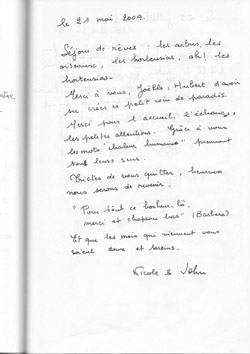 le 21 mai 2009.
Séjour de rêves : les arbres, les
oiseaux, les hortensias, ah! les
hortensias.
Merci à vous, Joëlle, Hubert d'avoir
su créer ce petit coin de paradis.
Merci pour l'accueil, l'échange,
les petites attentions. Grâce à vous
les mots "chaleur humaine" prennent
tout leurs sens.
Tristes de vous quitter, heureux
nous serons de revenir.
"Pour tout ce bonheur-là,
merci et chapeau bas" (Barbara)
Et que les mois qui viennent vous
soient doux et sereins.
Nicole & John